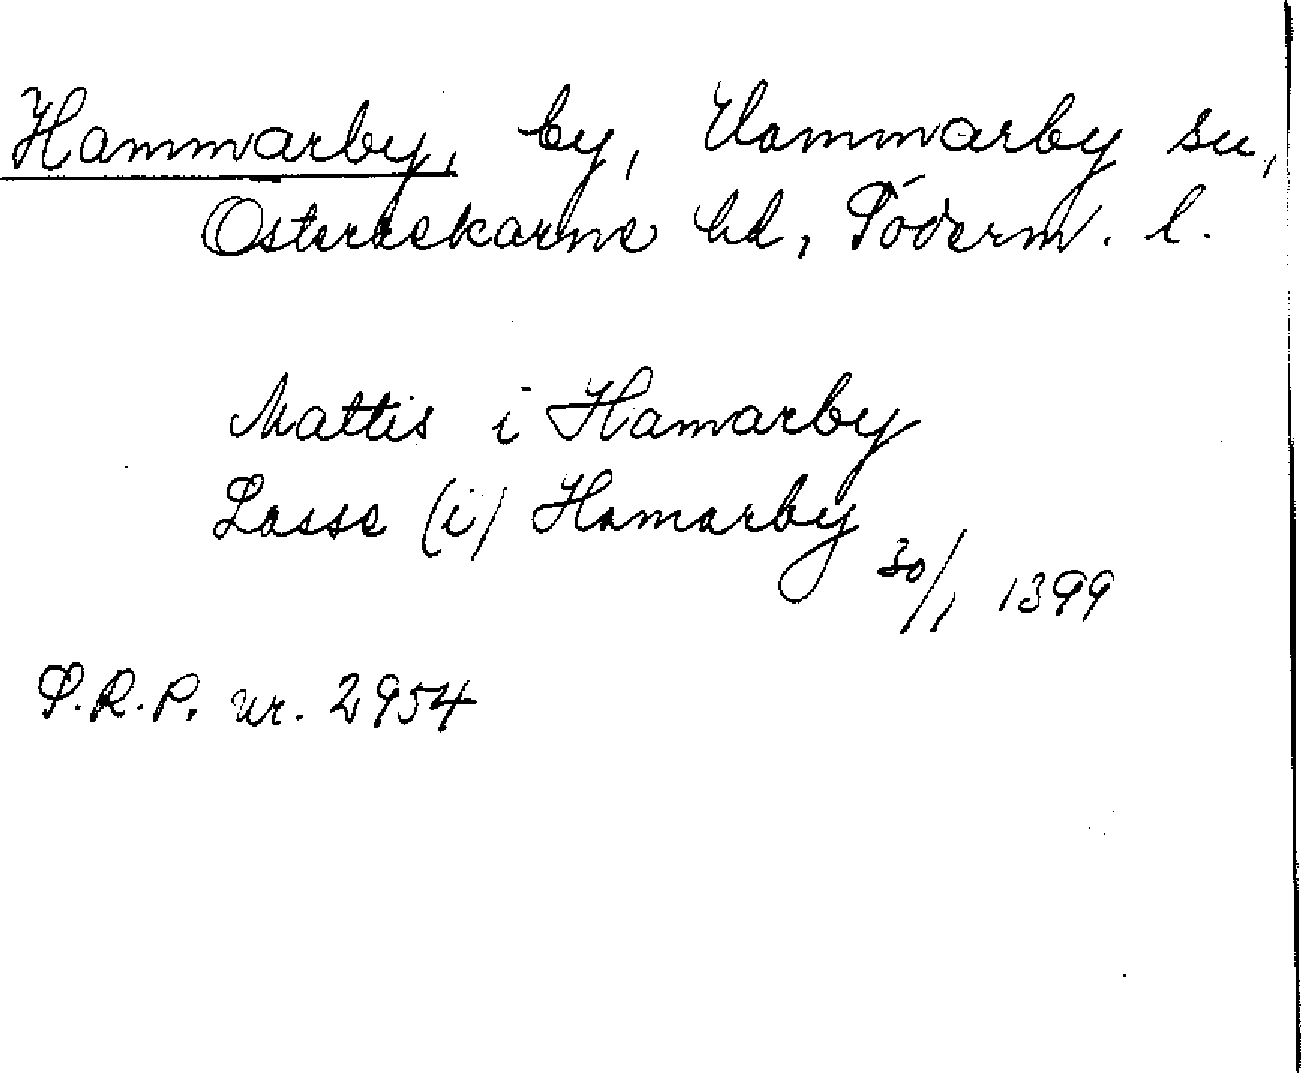 Hammarby, by, Hammarby sn,
Österrekarne hd, Söderm. l.
Mattis i Hamarby
Lasse (i) Hamarby 30/1 1399
S.R.P. nr. 2954